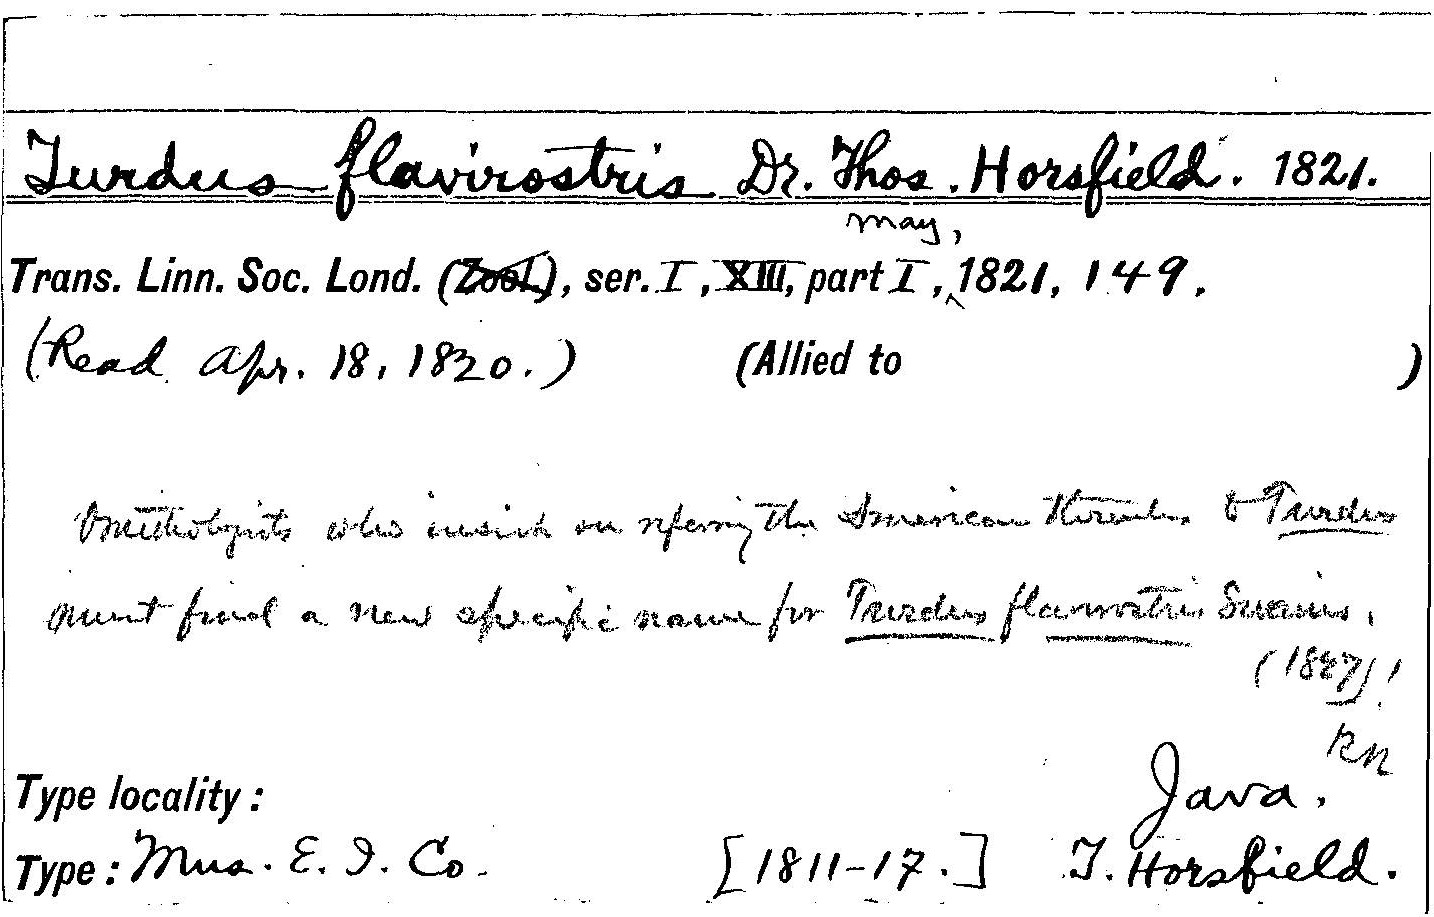 Turdus flavirostris Dr. Thos. Horsfield. 1821.
may,
Trans. Linn. Soc. Lond. (Zool.), ser. I, XIII, part I, ^ 1821, 149.
(Read Apr. 18, 1820.) (Allied to )
Ornithologists who insist on referring the American thrushes to Turdus
must find a new specific name for Turdus flavirostris Swains.
(1827)!
Java.
Type locality:
Type: Mus. E. I. Co. [1811-17.] T. Horsfield.